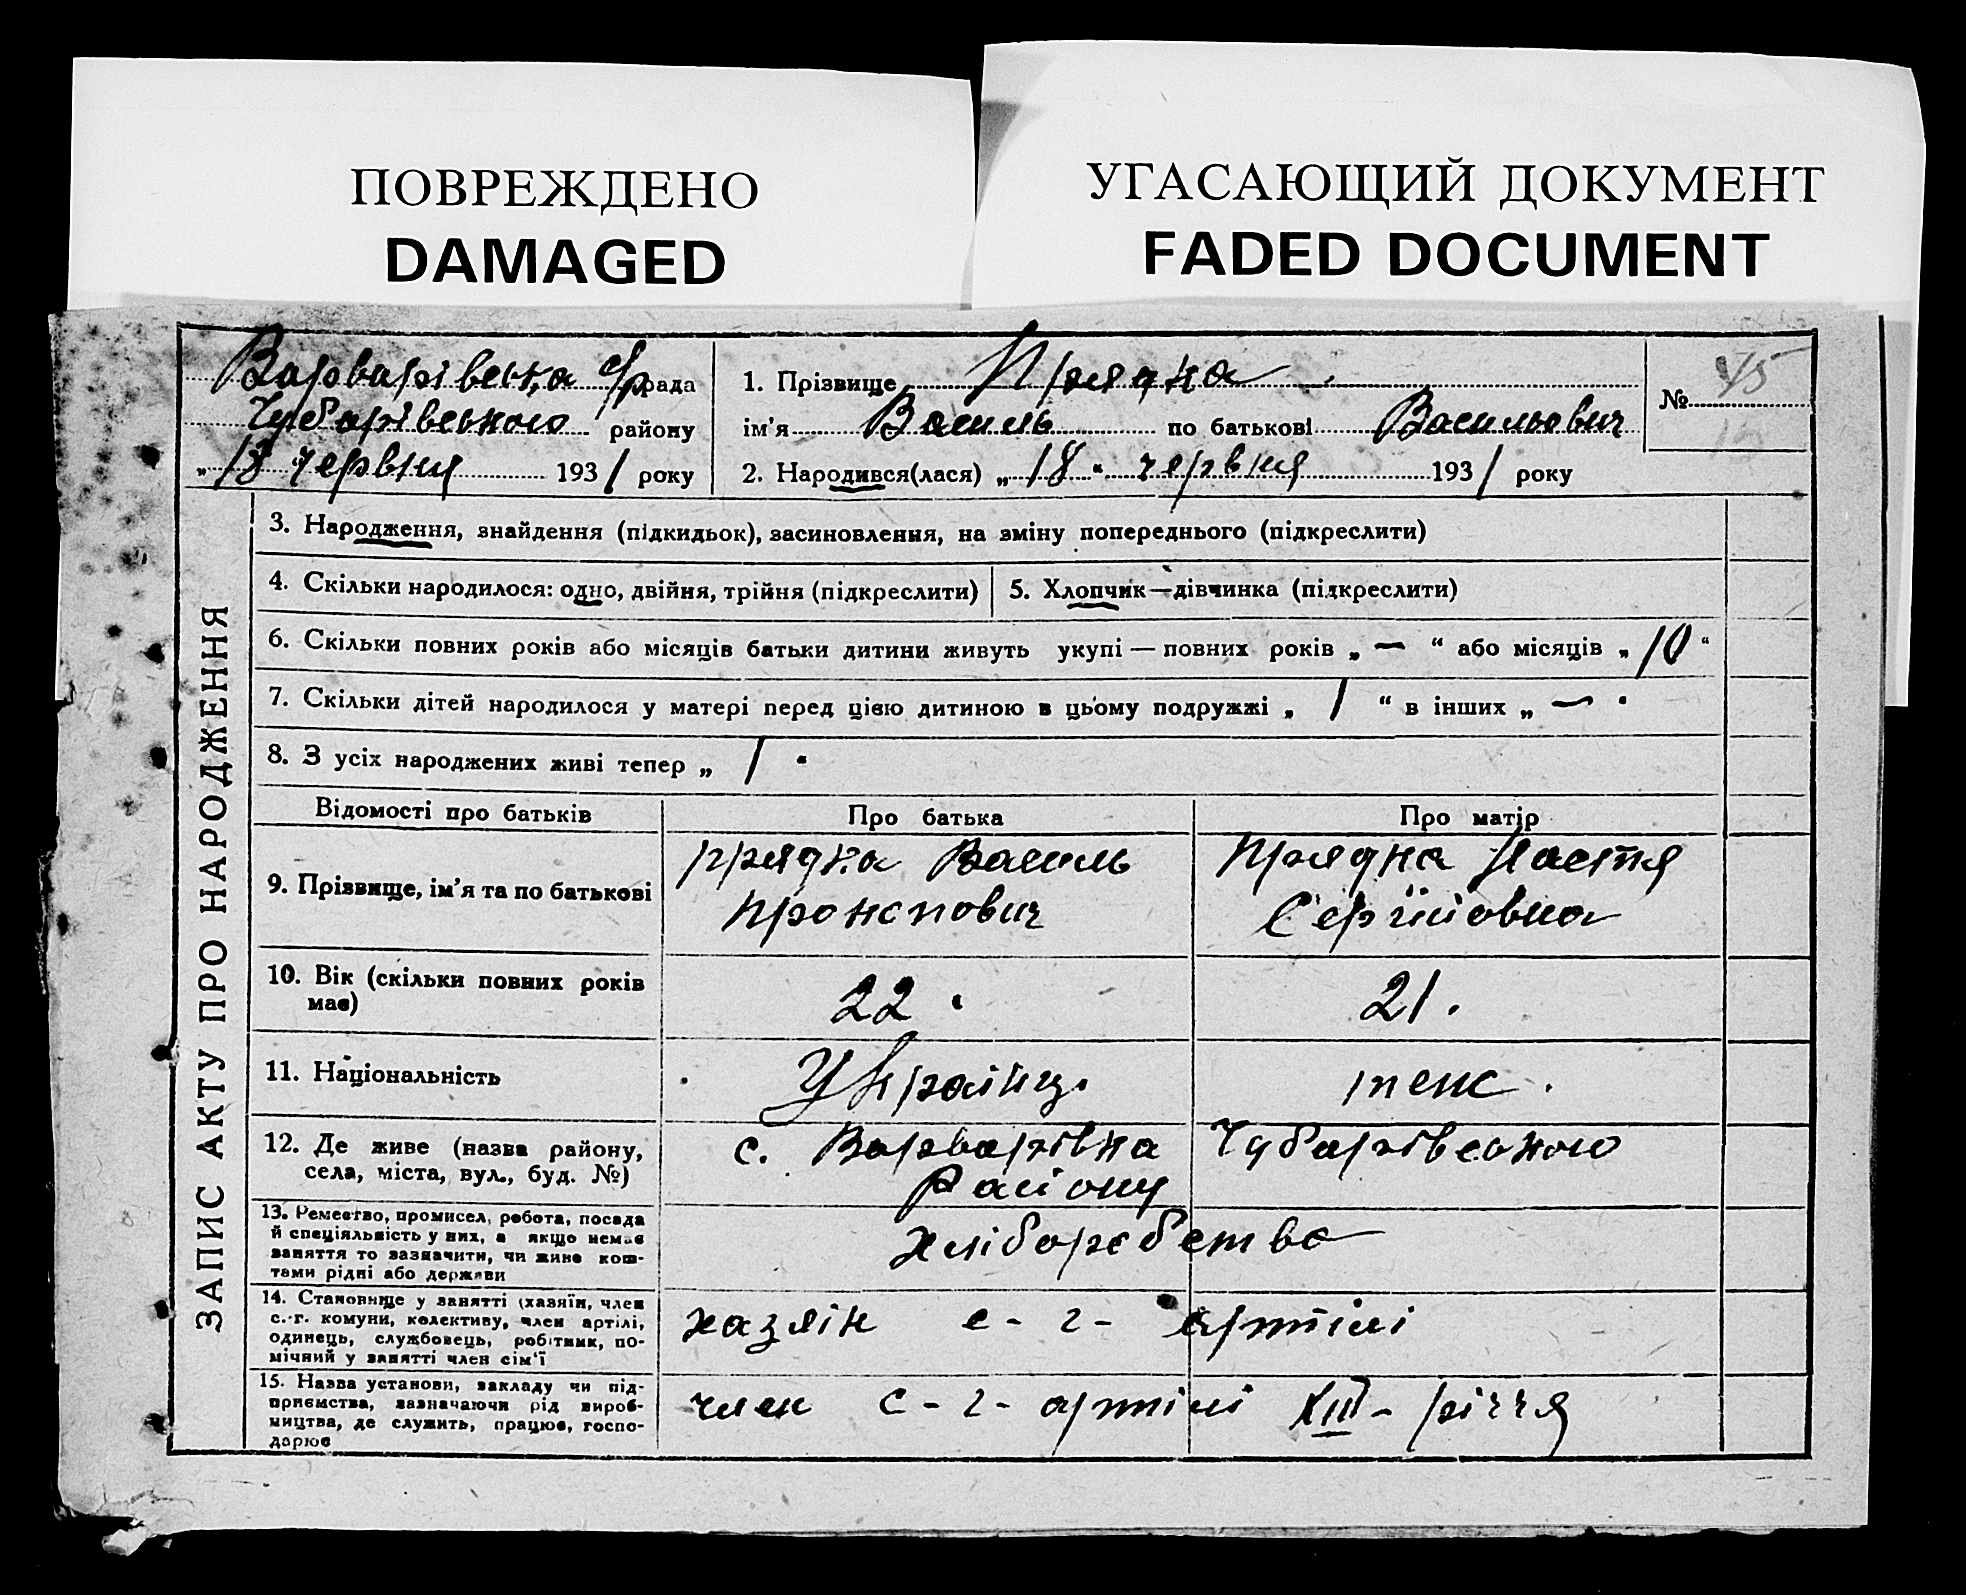 ПОВРЕЖДЕНО
DAMAGED
УГАСАЮЩИЙ ДОКУМЕНТ
FADED DOCUMENT
Варварівська с/рада
Чубарівського району
„ 18 червня 1931 року
1. Прізвище Прядка
ім'я Василь по батькові Васильович
2. Народився(лася) „ 18 " червня 1931 року
№ 45
ЗАПИС АКТУ ПРО НАРОДЖЕННЯ
3. Народження, знайдення (підкидьок), засиновлення, на зміну попереднього (підкреслити)
4. Скільки народилося: одно, двійня, трійня (підкреслити)
5. Хлопчик—дівчинка (підкреслити)
6. Скільки повних років або місяців батьки дитини живуть укупі — повних років „ — “ або місяців „ 10 “
7. Скільки дітей народилося у матері перед цією дитиною в цьому подружжі „ 1 “ в інших „ — "
8. З усіх народжених живі тепер „ 1 "
Відомості про батьків
Про батька
Про матір
9. Прізвище, ім'я та по батькові
Прядка Василь
Пронопович
Прядка Настя
Сергіїовна
10. Вік (скільки повних років
має)
22
21.
11. Національність
Українц.
теж.
12. Де живе (назва району,
села, міста, вул., буд. №)
с. Варварівка Чубарівського
Району
13. Ремество, промисел, робота, посада
й спеціяльність у них, а якщо немає
заняття то зазначити, чи живе кош-
тами рідні або держави
хліборобство
14. Становище у занятті (хазяїн, член
с.-г. комуни, колективу, член артілі,
одинець, службовець, робітник, по-
мічний у занятті член сім'ї
хазяїн с-г- артілі
15. Назва установи, закладу чи під-
приємства, зазначаючи рід вироб-
ництва, де служить, працює, госпо-
дарює
член с-г- артілі XIII- річчя